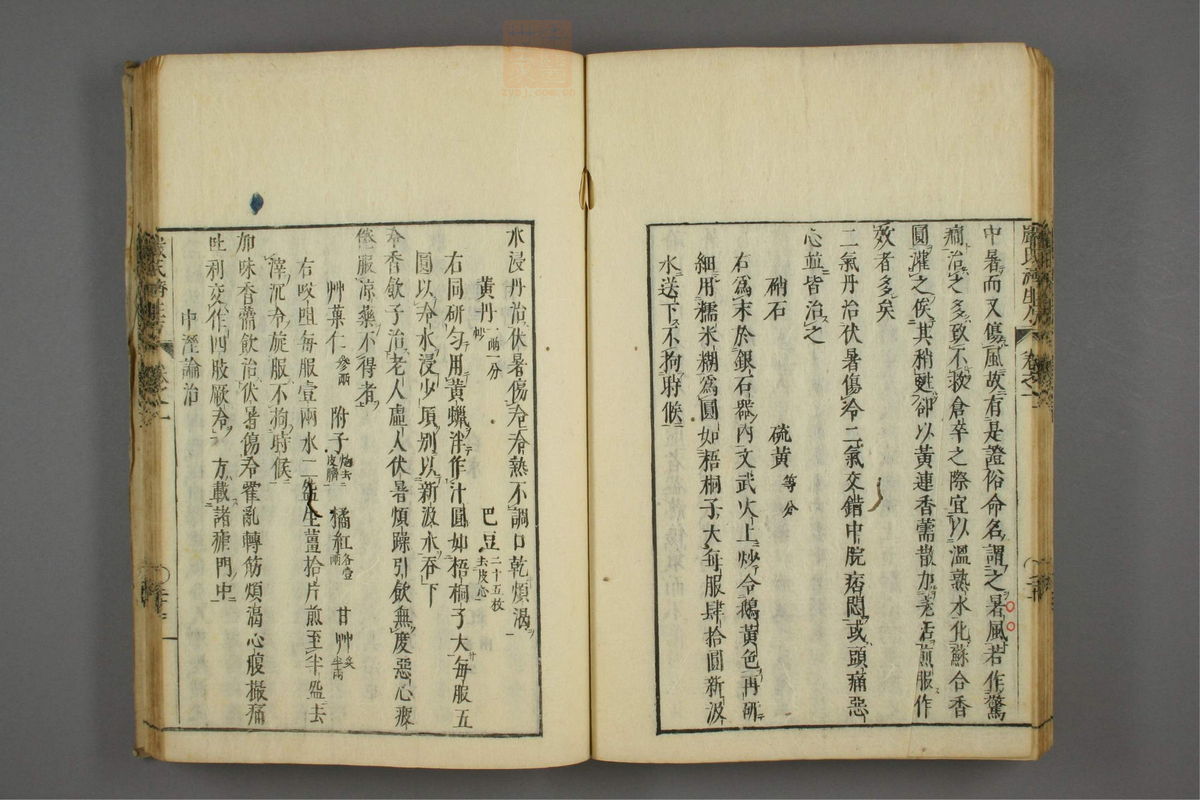 中暑而又傷風故有是證俗命名謂之暑風若作驚
癇治之多致不救倉卒之際宜以溫熟水化蘇合香
圓灌之俟其稍甦卻以黃連香薷散加羌活煎服作
效者多矣
二氣丹治伏暑傷冷二氣交錯中脘痞悶或頭痛惡
心並皆治之
硝石 硫黃等分
右爲末於銀石器內文武火上炒令鵝黃色再研
細用糯米糊爲圓如梧桐子大每服肆拾圓新汲
水送下不拘時候
水浸丹治伏暑傷冷冷熱不調口乾煩渴
黃丹一兩一分 巴豆二十五枚去皮心
右同研勻用黃蠟泮作汁圓如梧桐子大每服五
圓以冷水浸少頃別以新汲水吞下
冷香飲子治老人虛人伏暑煩躁引飲無度惡心疲
倦服涼藥不得者
艸菓仁參兩 附子炮去皮臍 橘紅各壹兩 甘艸炙半兩
右㕮咀每服壹兩水二盌生薑拾片煎至半盌去
滓沉冷旋服不拘時候
加味香薷飲治伏暑傷冷霍亂轉筋煩渴心腹撮痛
吐利交作四肢厥冷方載諸瘧門中
中溼論治
嚴氏濟生方 卷之一